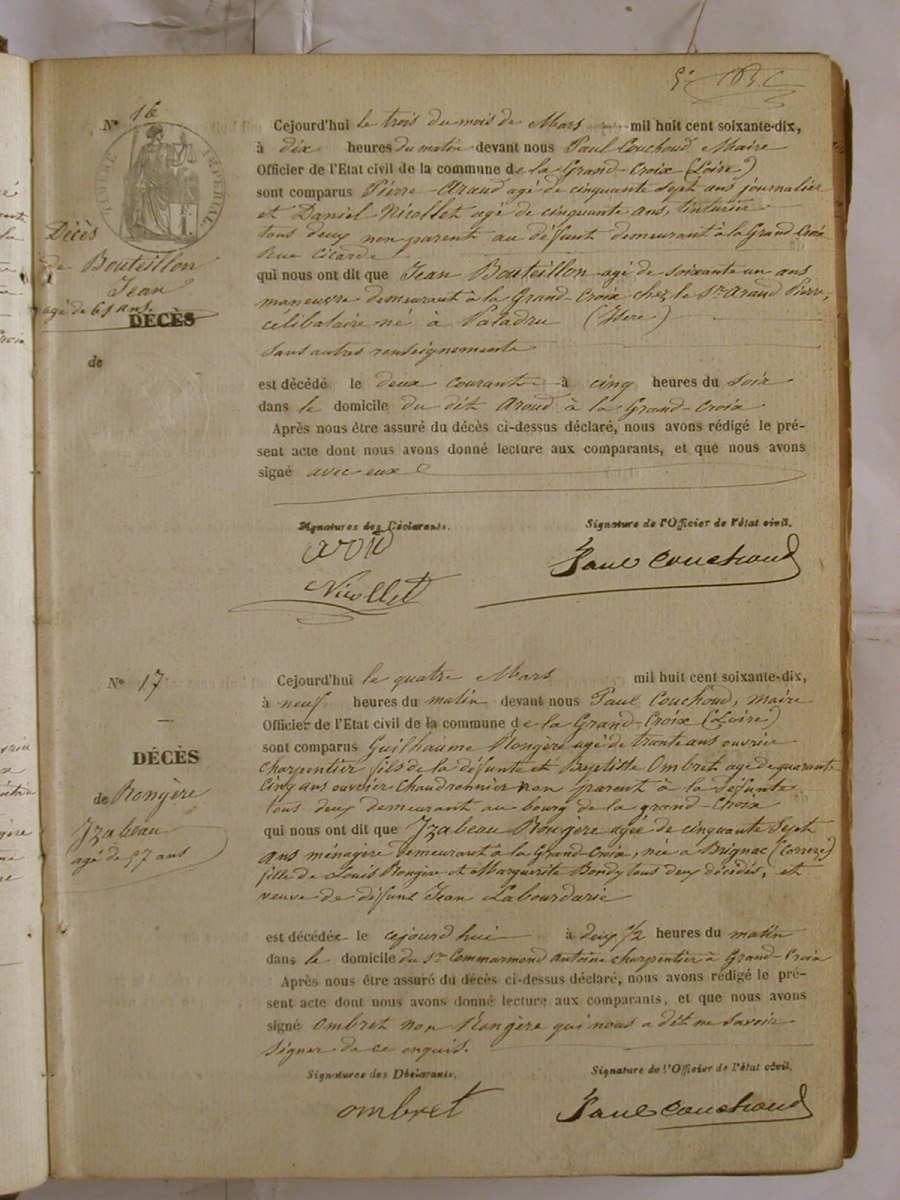 5e
N° 16
TIMBRE IMPERIAL
Décès
de Bouteillon
Jean
agé de 61 ans
DÉCÈS
de
Cejourd'hui le trois du mois de Mars mil huit cent soixante-dix,
à dix heures du matin devant nous Paul Couchoud Maire
Officier de l'Etat civil de la commune de la Grand-Croix (Loire)
sont comparus Pierre Araud agé de cinquante sept ans journalier
et Daniel Nicollet agé de cinquante ans, tinturier
tous deux non parent au défunt demeurant à la Grand-Croix
Rue
qui nous ont dit que Jean Bouteillon agé de soixante un ans
maneuvre demeurant à la Grand-Croix chez le Sr Araud Pierre,
célibataire né à Paladru (Isere)
sans autres renseignements
est décédé le deux courant à cinq heures du soir
dans le domicile du dit Aroud à la Grand-Croix
Après nous être assuré du décès ci-dessus déclaré, nous avons rédigé le pré-
sent acte dont nous avons donné lecture aux comparants, et que nous avons
signé avec eux
Signatures des Déclarants.
Signature de l'Officier de l'état civil.
Nicollet
Paul Couchoud
N° 17
DÉCÈS
de Rongère
Yzabeau
agé de 57 ans
Cejourd'hui le quatre Mars mil huit cent soixante-dix,
à neuf heures du matin devant nous Paul Couchoud, maire
Officier de l'Etat civil de la commune de la Grand-Croix (Loire)
sont comparus Guilhaume Rongère agé de trante ans ouvrier
charpentier fils de la défunte et Baptiste Ombret agé de quarante
cinq ans ouvrier Chaudronnier non parent à la défunte
tous deux demeurant au bourg de la grand-Croix
qui nous ont dit que Yzabeau Rougère agée de cinquante Sept
ans ménagère demeurant à la Grand-Croix, née à Brignac (Correze)
fille de Louis Rongère et Marguerite Bondy tous deux décédés, et
veuve de défunt Jean Labourdarie
est décédée le cejourd'hui à deux 1/2 heures du matin
dans le domicile du Sr Commarmond Antoine charpentier à Grand-Croix
Après nous être assuré du décès ci-dessus déclaré, nous avons rédigé le pré-
sent acte dont nous avons donné lecture aux comparants, et que nous avons
signé Ombret non Rongère qui nous a dit ne savoir
signer de ce enquis.
Signatures des Déclarants.
Signature de l'Officier de l'état civil.
ombret
Paul Couchoud